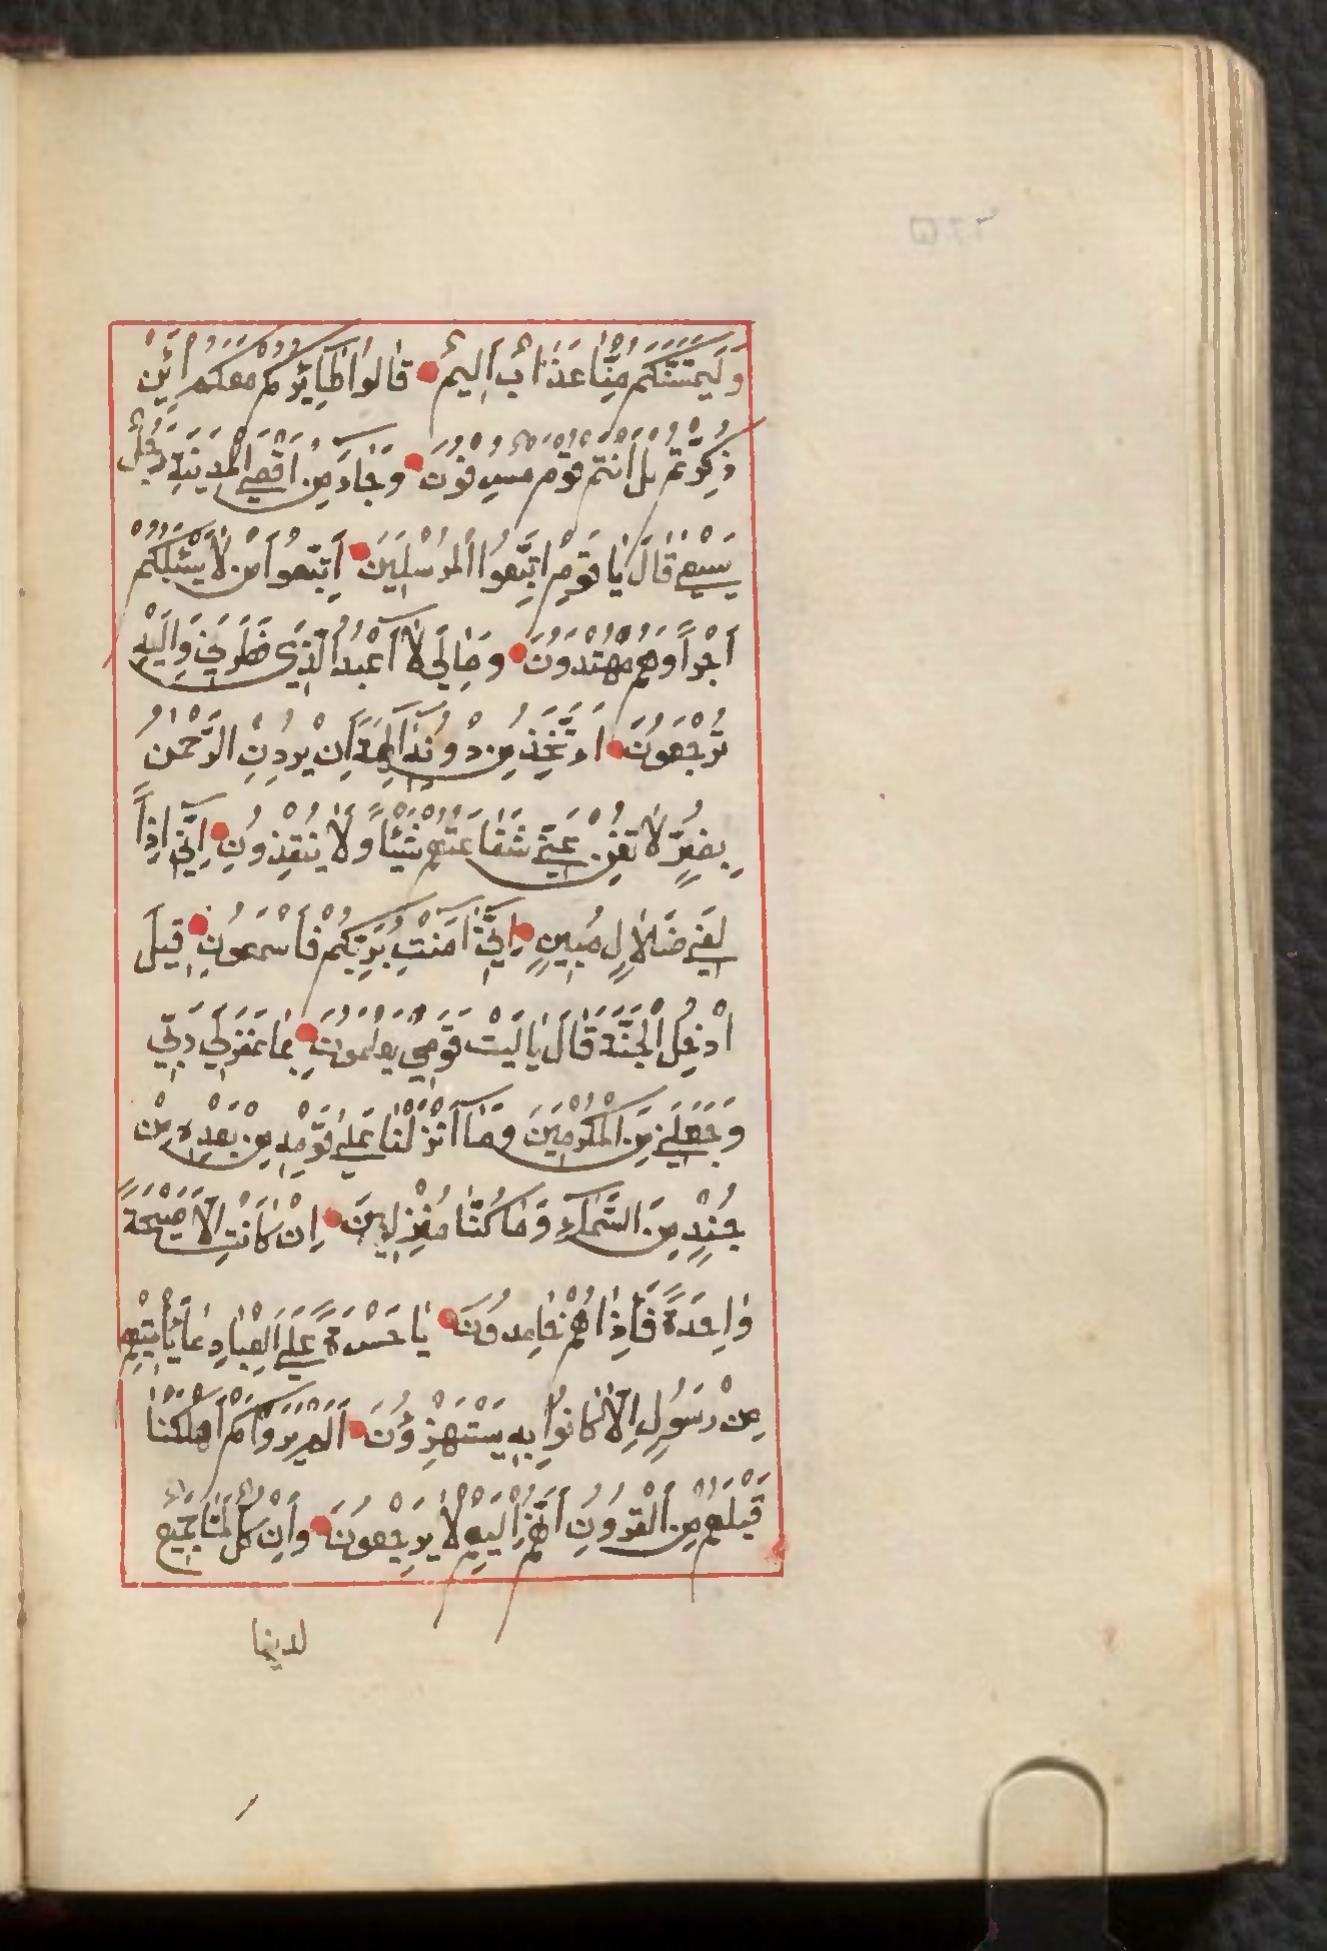 وَلَيَمَسَّنَّكُمْ مِنَّا عَذَابٌ اَلِيمٌ قَالُوا طَائِرُكُمْ مَعَكُمْ اَئِنْ
ذُكِّرْتُمْ بَلْ اَنْتُمْ قَوْمٌ مُسْرِفُونَ وَجَاءَ مِنْ اَقْصَى الْمَدِينَةِ رَجُلٌ
يَسْعٰى قَالَ يَا قَوْمِ اتَّبِعُوا الْمُرْسَلِينَ اِتَّبِعُوا مَنْ لَا يَسْئَلُكُمْ
اَجْرًا وَهُمْ مُهْتَدُونَ وَمَا لِيَ لَا اَعْبُدُ الَّذِي فَطَرَنِي وَاِلَيْهِ
تُرْجَعُونَ ءَاَتَّخِذُ مِنْ دُونِهِ اٰلِهَةً اِنْ يُرِدْنِ الرَّحْمٰنُ
بِضُرٍّ لَا تُغْنِ عَنِّي شَفَاعَتُهُمْ شَيْئًا وَلَا يُنْقِذُونِ اِنِّي اِذًا
لَفِي ضَلَالٍ مُبِينٍ اِنِّي اٰمَنْتُ بِرَبِّكُمْ فَاسْمَعُونِ قِيلَ
ادْخُلِ الْجَنَّةَ قَالَ يَا لَيْتَ قَوْمِي يَعْلَمُونَ بِمَا غَفَرَ لِي رَبِّي
وَجَعَلَنِي مِنَ الْمُكْرَمِينَ وَمَا اَنْزَلْنَا عَلٰى قَوْمِهِ مِنْ بَعْدِهِ مِنْ
جُنْدٍ مِنَ السَّمَاءِ وَمَا كُنَّا مُنْزِلِينَ اِنْ كَانَتْ اِلَّا صَيْحَةً
وَاحِدَةً فَاِذَا هُمْ خَامِدُونَ يَا حَسْرَةً عَلَى الْعِبَادِ مَا يَأْتِيهِمْ
مِنْ رَسُولٍ اِلَّا كَانُوا بِهِ يَسْتَهْزِؤُنَ اَلَمْ يَرَوْا كَمْ اَهْلَكْنَا
قَبْلَهُمْ مِنَ الْقُرُونِ اَنَّهُمْ اِلَيْهِمْ لَا يَرْجِعُونَ وَاِنْ كُلٌّ لَمَّا جَمِيعٌ
لدينا